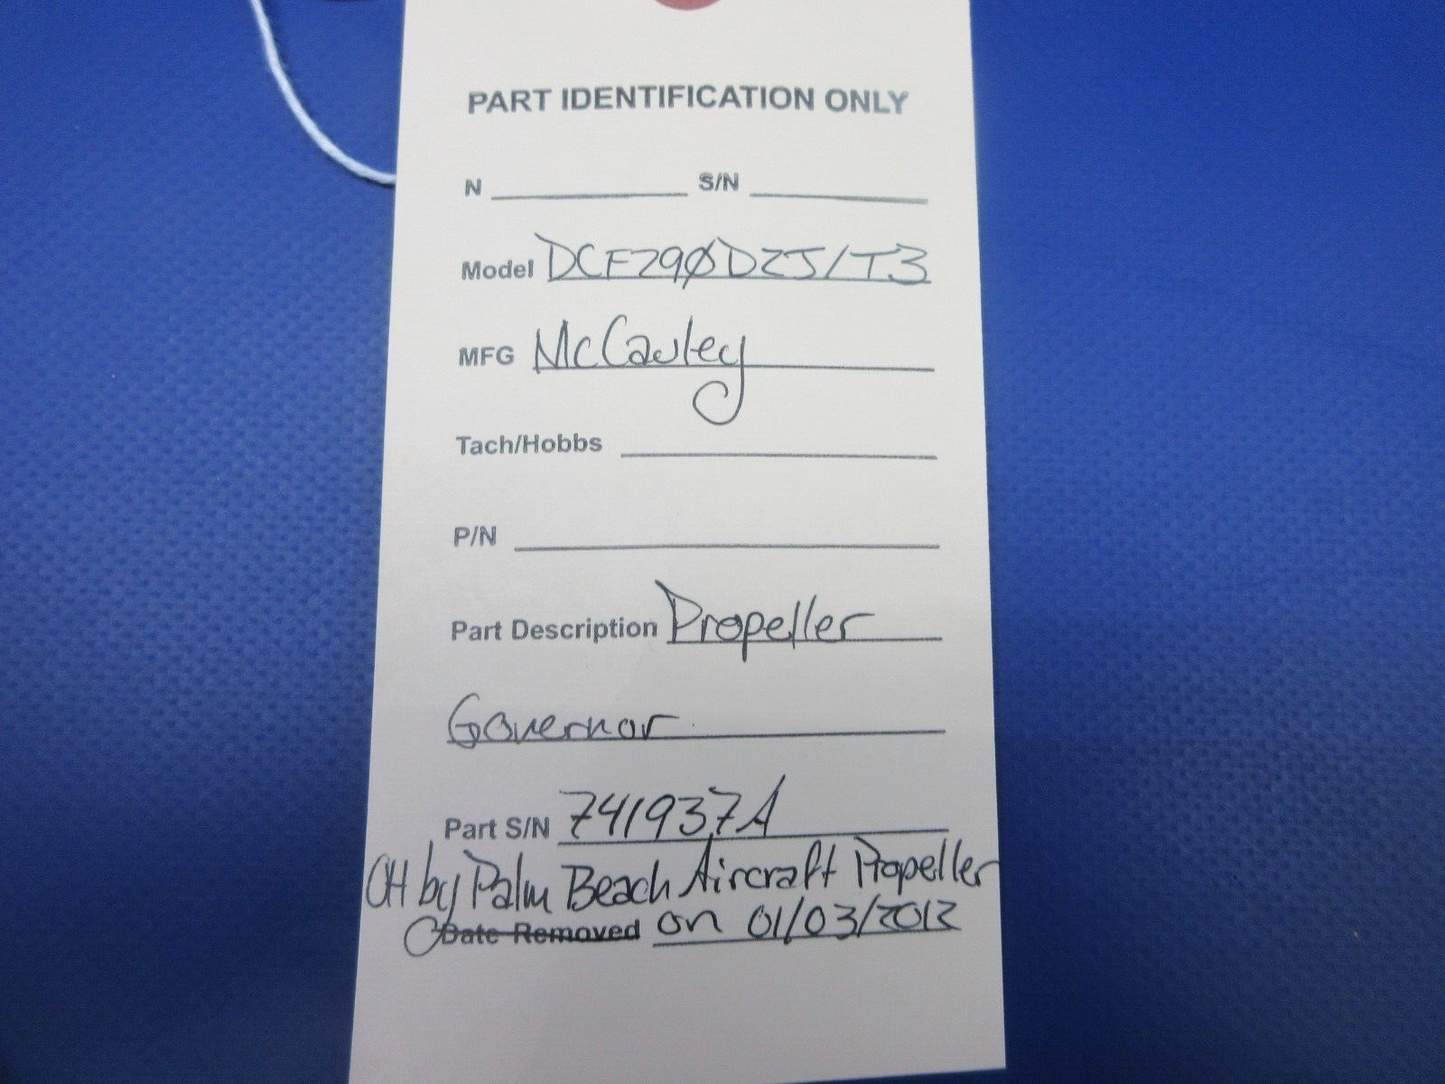 PART IDENTIFICATION ONLY
N S/N
Model DCF290D2J/T3
MFG McCauley
Tach/Hobbs
P/N
Part Description Propeller
Governor
Part S/N 741937A
OH by Palm Beach Aircraft Propeller
Date Removed on 01/03/2012